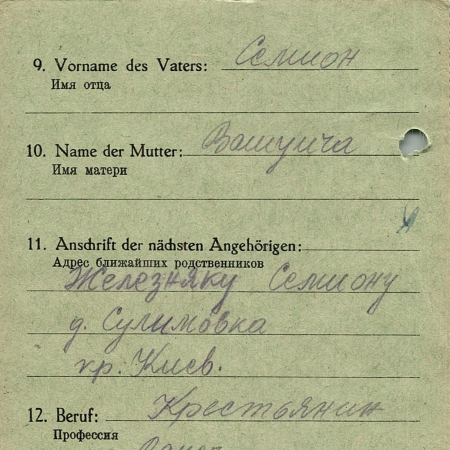 9. Vorname des Vaters: Семион
Имя отца
10. Name der Mutter:
Имя матери
11. Anschrift der nächsten Angehörigen:
Адрес ближайших родственников
Железняку Семиону
д. Сулимовка
пр. Киев.
12. Beruf: Крестьянин
Профессия